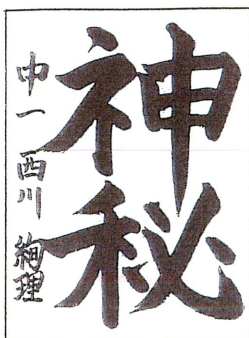 神秘
中一 西川 絢理